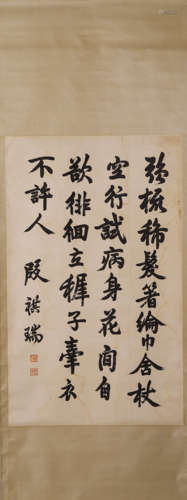 強梳稀髮著綸巾舍杖
空行試病身花間自
欲徘徊立穉子牽衣
不許人 段祺瑞